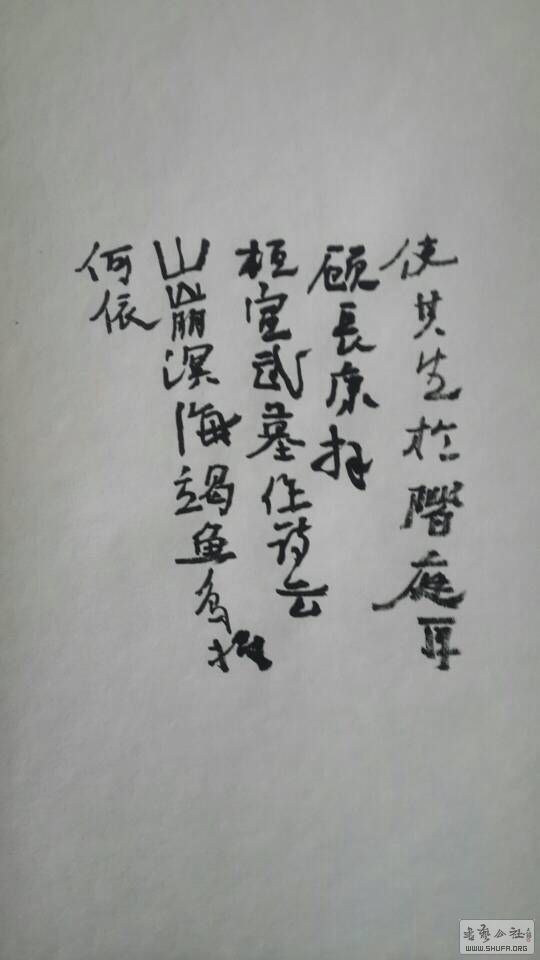 使其生於階庭耳
顧長康拜
桓宣武墓作詩云
山崩溟海竭魚鳥將
何依
书艺公社
WWW.SHUFA.ORG